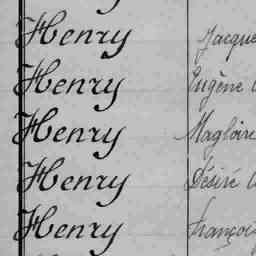 Henry Jacque
Henry Eugène
Henry Magloire
Henry Désiré
Henry François